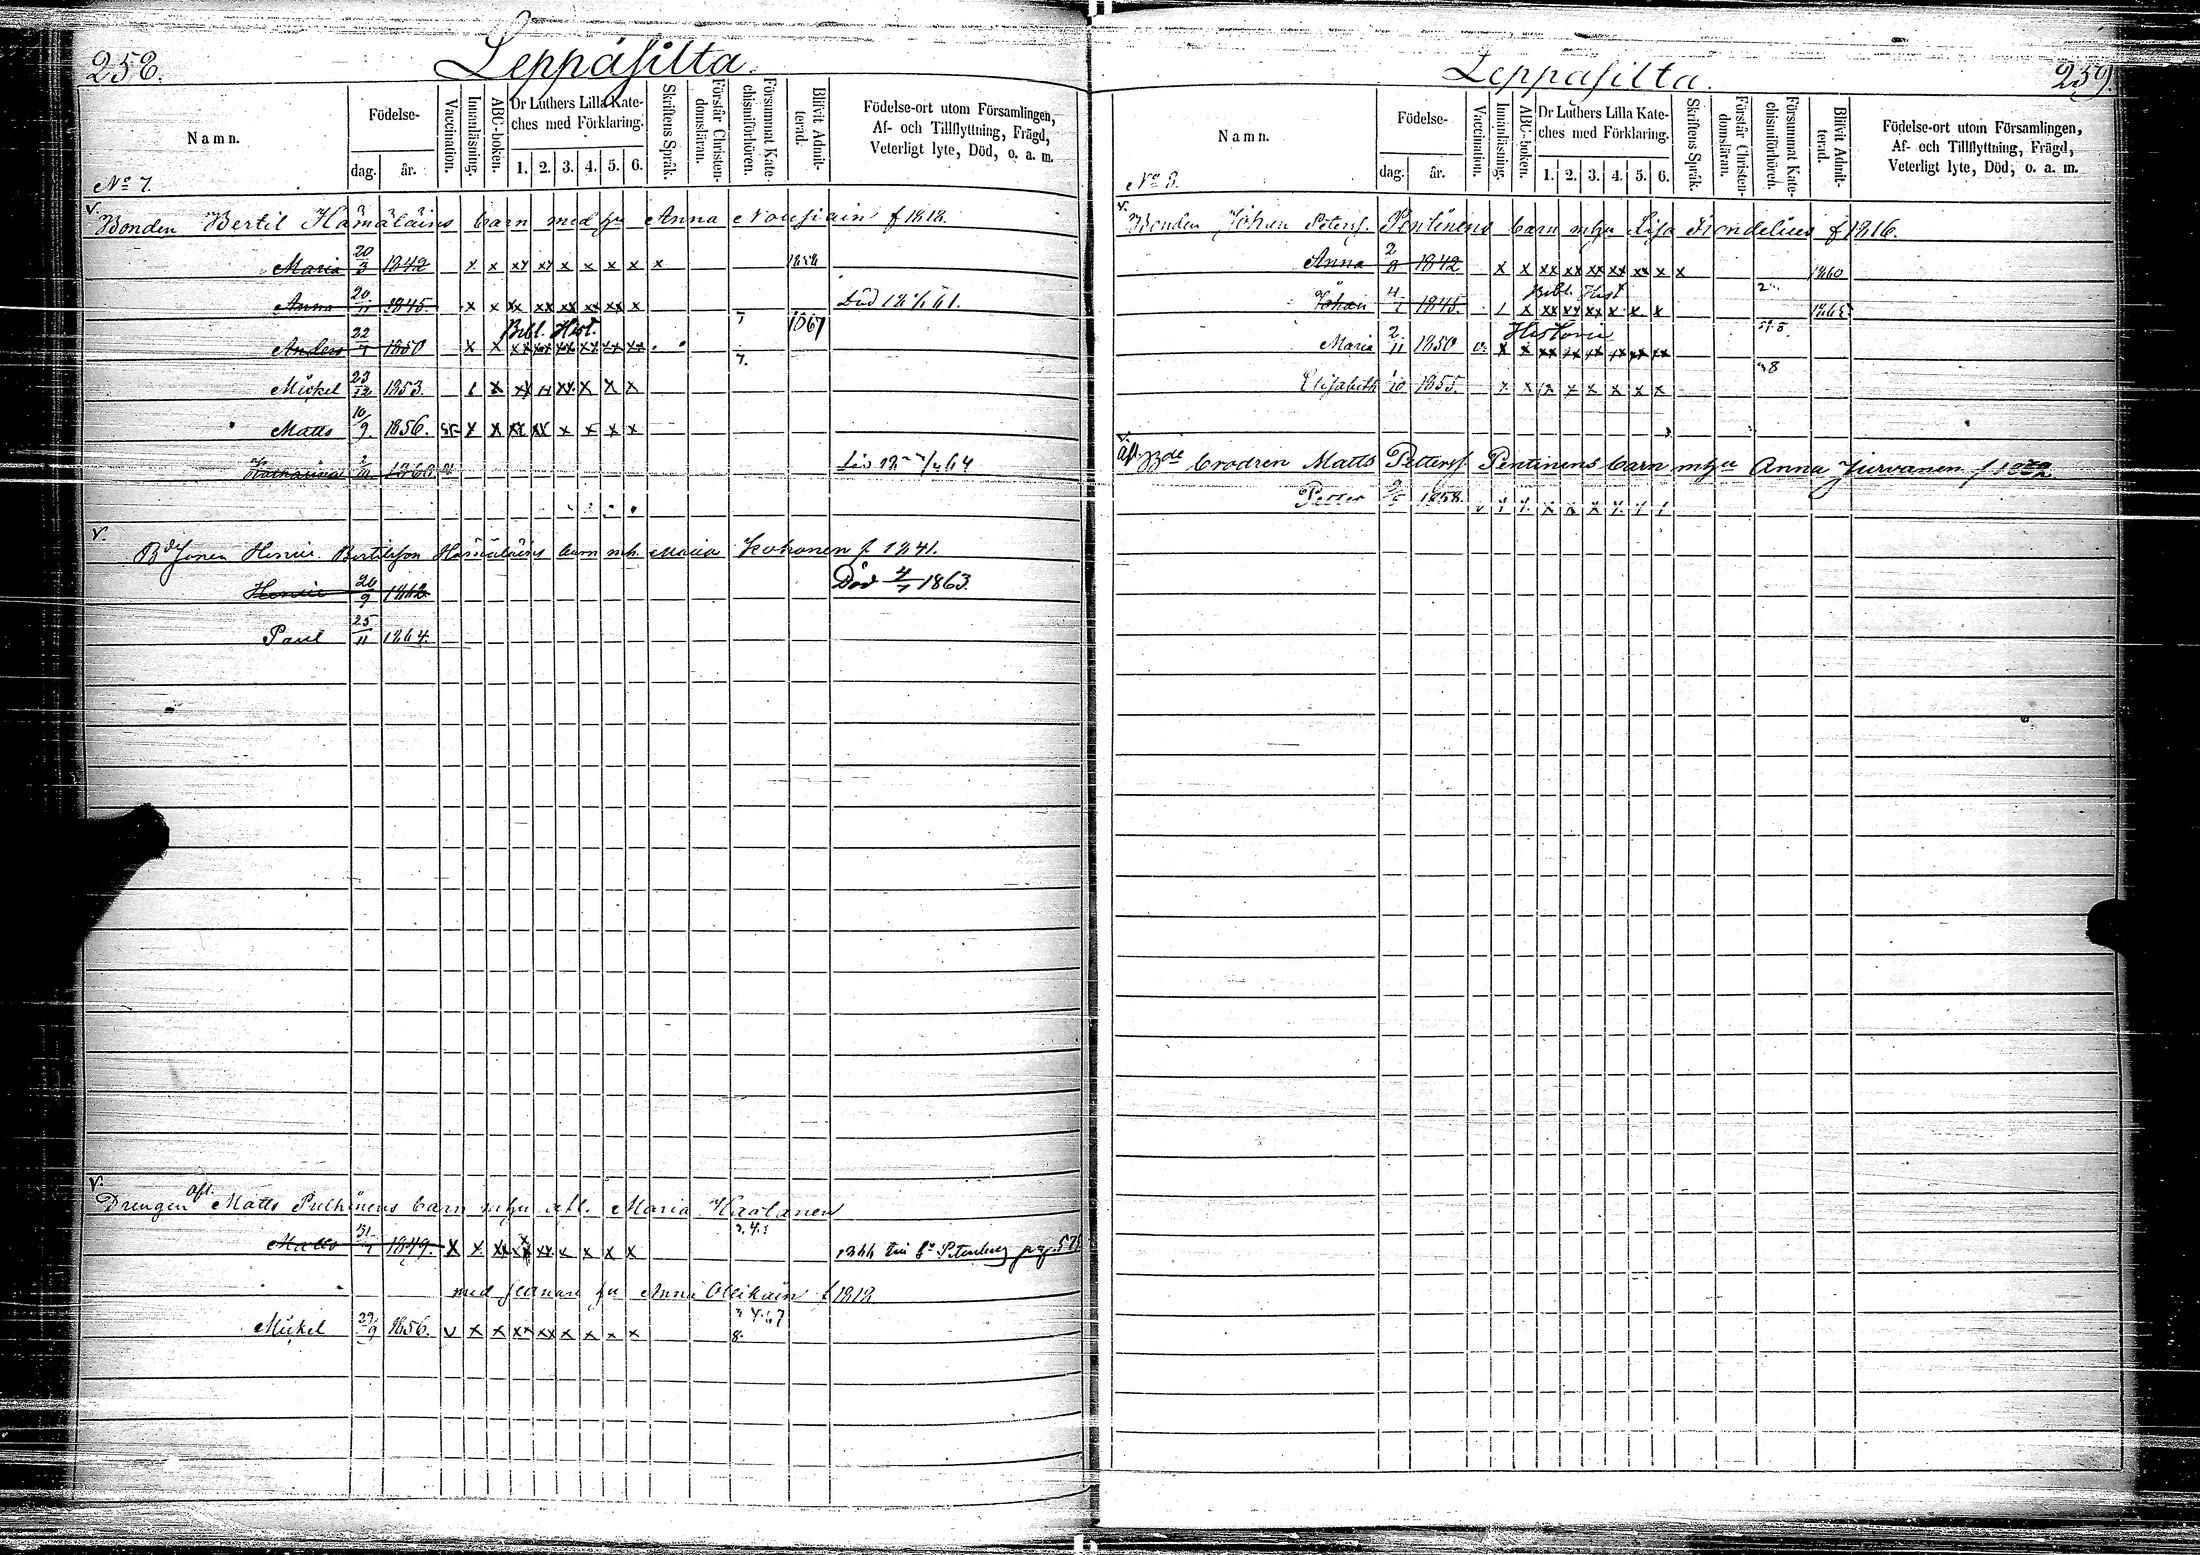 258.
Leppäsilta.
Namn.
Födelse-
dag. år.
Vaccination.
Innanläsning.
ABC-boken.
Dr Luthers Lilla Kate-
ches med Förklaring.
1. 2. 3. 4. 5. 6.
Skriftens Språk.
Förstår Christen-
domsläran.
Försummat Kate-
chismiförhören.
Blifvit Admit-
terad.
Födelse-ort utom Församlingen,
Af- och Tillflyttning, Frägd,
Veterligt lyte, Död, o. a. m.
No 7.
v.
Bonden Bertil Hämäläins barn med hu Anna Nousiain f 1818.
Maria 20/3 1842 x x xx xx x x x x x 1858
Anna 20/11 1845. x x xx xx xx xx xx x Död
Bibl. Hist. 7 1867
Anders 22/7 1850 x x xx xx xx xx xx xx
7.
Mickel 23/12 1853. x x x x x
Matts 10/9. 1856. x x xx xx x x x x
Katharina
v.
Bdesonen Henric Bertilsson Hämäläins barn mh. Maria Kohonen f 1841.
Henric 20/9 1862 Död 4/7 1863.
Paul 25/11 1864.
v.
Drengen afl. Matts Pulkinens barn mhu afl. Maria Kaalanen
Matts 31/7 1849. x x xx xx xx x x x x 1866 till St Petersburg pag. 578
med senare hu Anna f 1818.
Mickel 29/9 1856. v x x xx xx x x x x 8.
Leppäsilta.
259.
Namn.
Födelse-
dag. år.
Vaccination.
Innanläsning.
ABC-boken.
Dr Luthers Lilla Kate-
ches med Förklaring.
1. 2. 3. 4. 5. 6.
Skriftens Språk.
Förstår Christen-
domsläran.
Försummat Kate-
chismiförhören.
Blifvit Admit-
terad.
Födelse-ort utom Församlingen,
Af- och Tillflyttning, Frägd,
Veterligt lyte, Död, o. a. m.
No 8.
v.
Bonden Johan Peterss. Pentinens barn mhu Lisa Frondelius f 1816.
Anna 2/8 1842 x x xx xx xx xx xx x x 1860
Bibl. Hist
Johan 4/1 1845. x xx xx xx x x x 1865
Historie
Maria 2/11 1850 v. x x xx xx xx xx xx xx
8
Elisabeth 1855. x x x x x x x x
v.
afl. Bde brodren Matts Petterss. Pentinens barn mhu Anna Jurvanen f
Petter 1858.